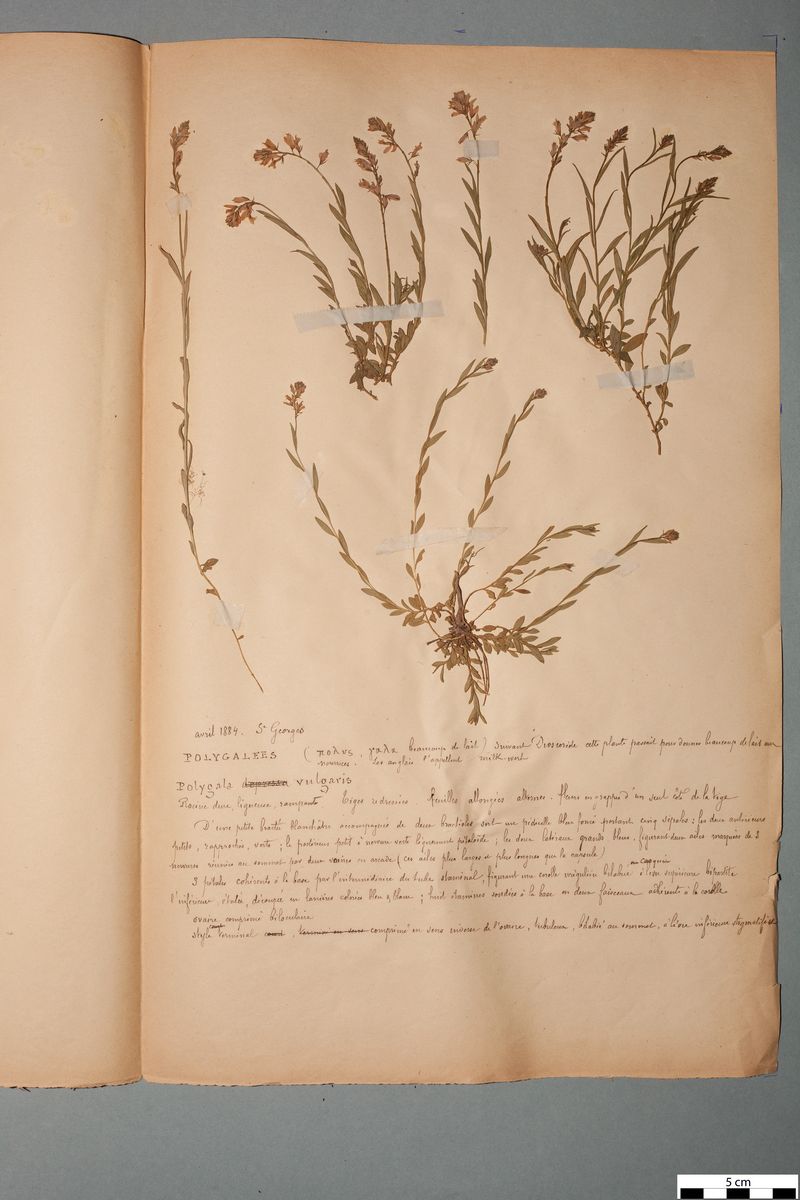 avril 1884. St Georges
POLYGALEES ( πολυς, γαλα beaucoup de lait) suivant Dioscoride cette plante passait pour donner beaucoup de lait aux
nourrices. Les anglais l'appellent milk-wort
Polygala vulgaris
Racine dure, ligneuse, rampante. Tiges redressées. Feuilles allongées alternes. fleurs en grappes d'un seul côté de la tige
D'une petite bractée blanchâtre accompagnée de deux bractéoles sort un pédicelle bleu foncé portant cinq sépales : les deux antérieurs
petits, rapprochés, verts ; le postérieur petit à nervure verte légèrement pétaloïde ; les deux latéraux grands bleus, figurant deux ailes marquées de 3
nervures réunies au sommet par deux veines en arcade ( ces ailes plus larges et plus longues que la capsule)
3 pétales cohérents à la base par l'intermédiaire du tube staminal, figurant une corolle irrégulière bilabiée à lèvre supérieure bipartite en capuchon
l'inférieure, étalée, découpée en lanières colorées bleu & blanc ; huit étamines soudées à la base en deux faisceaux adhérents à la corolle
ovaire comprimé biloculaire
style court terminal, comprimé en sens inverse de l'ovaire, tubuleux, bilabié au sommet, à lèvre inférieure stigmatifère
5 cm